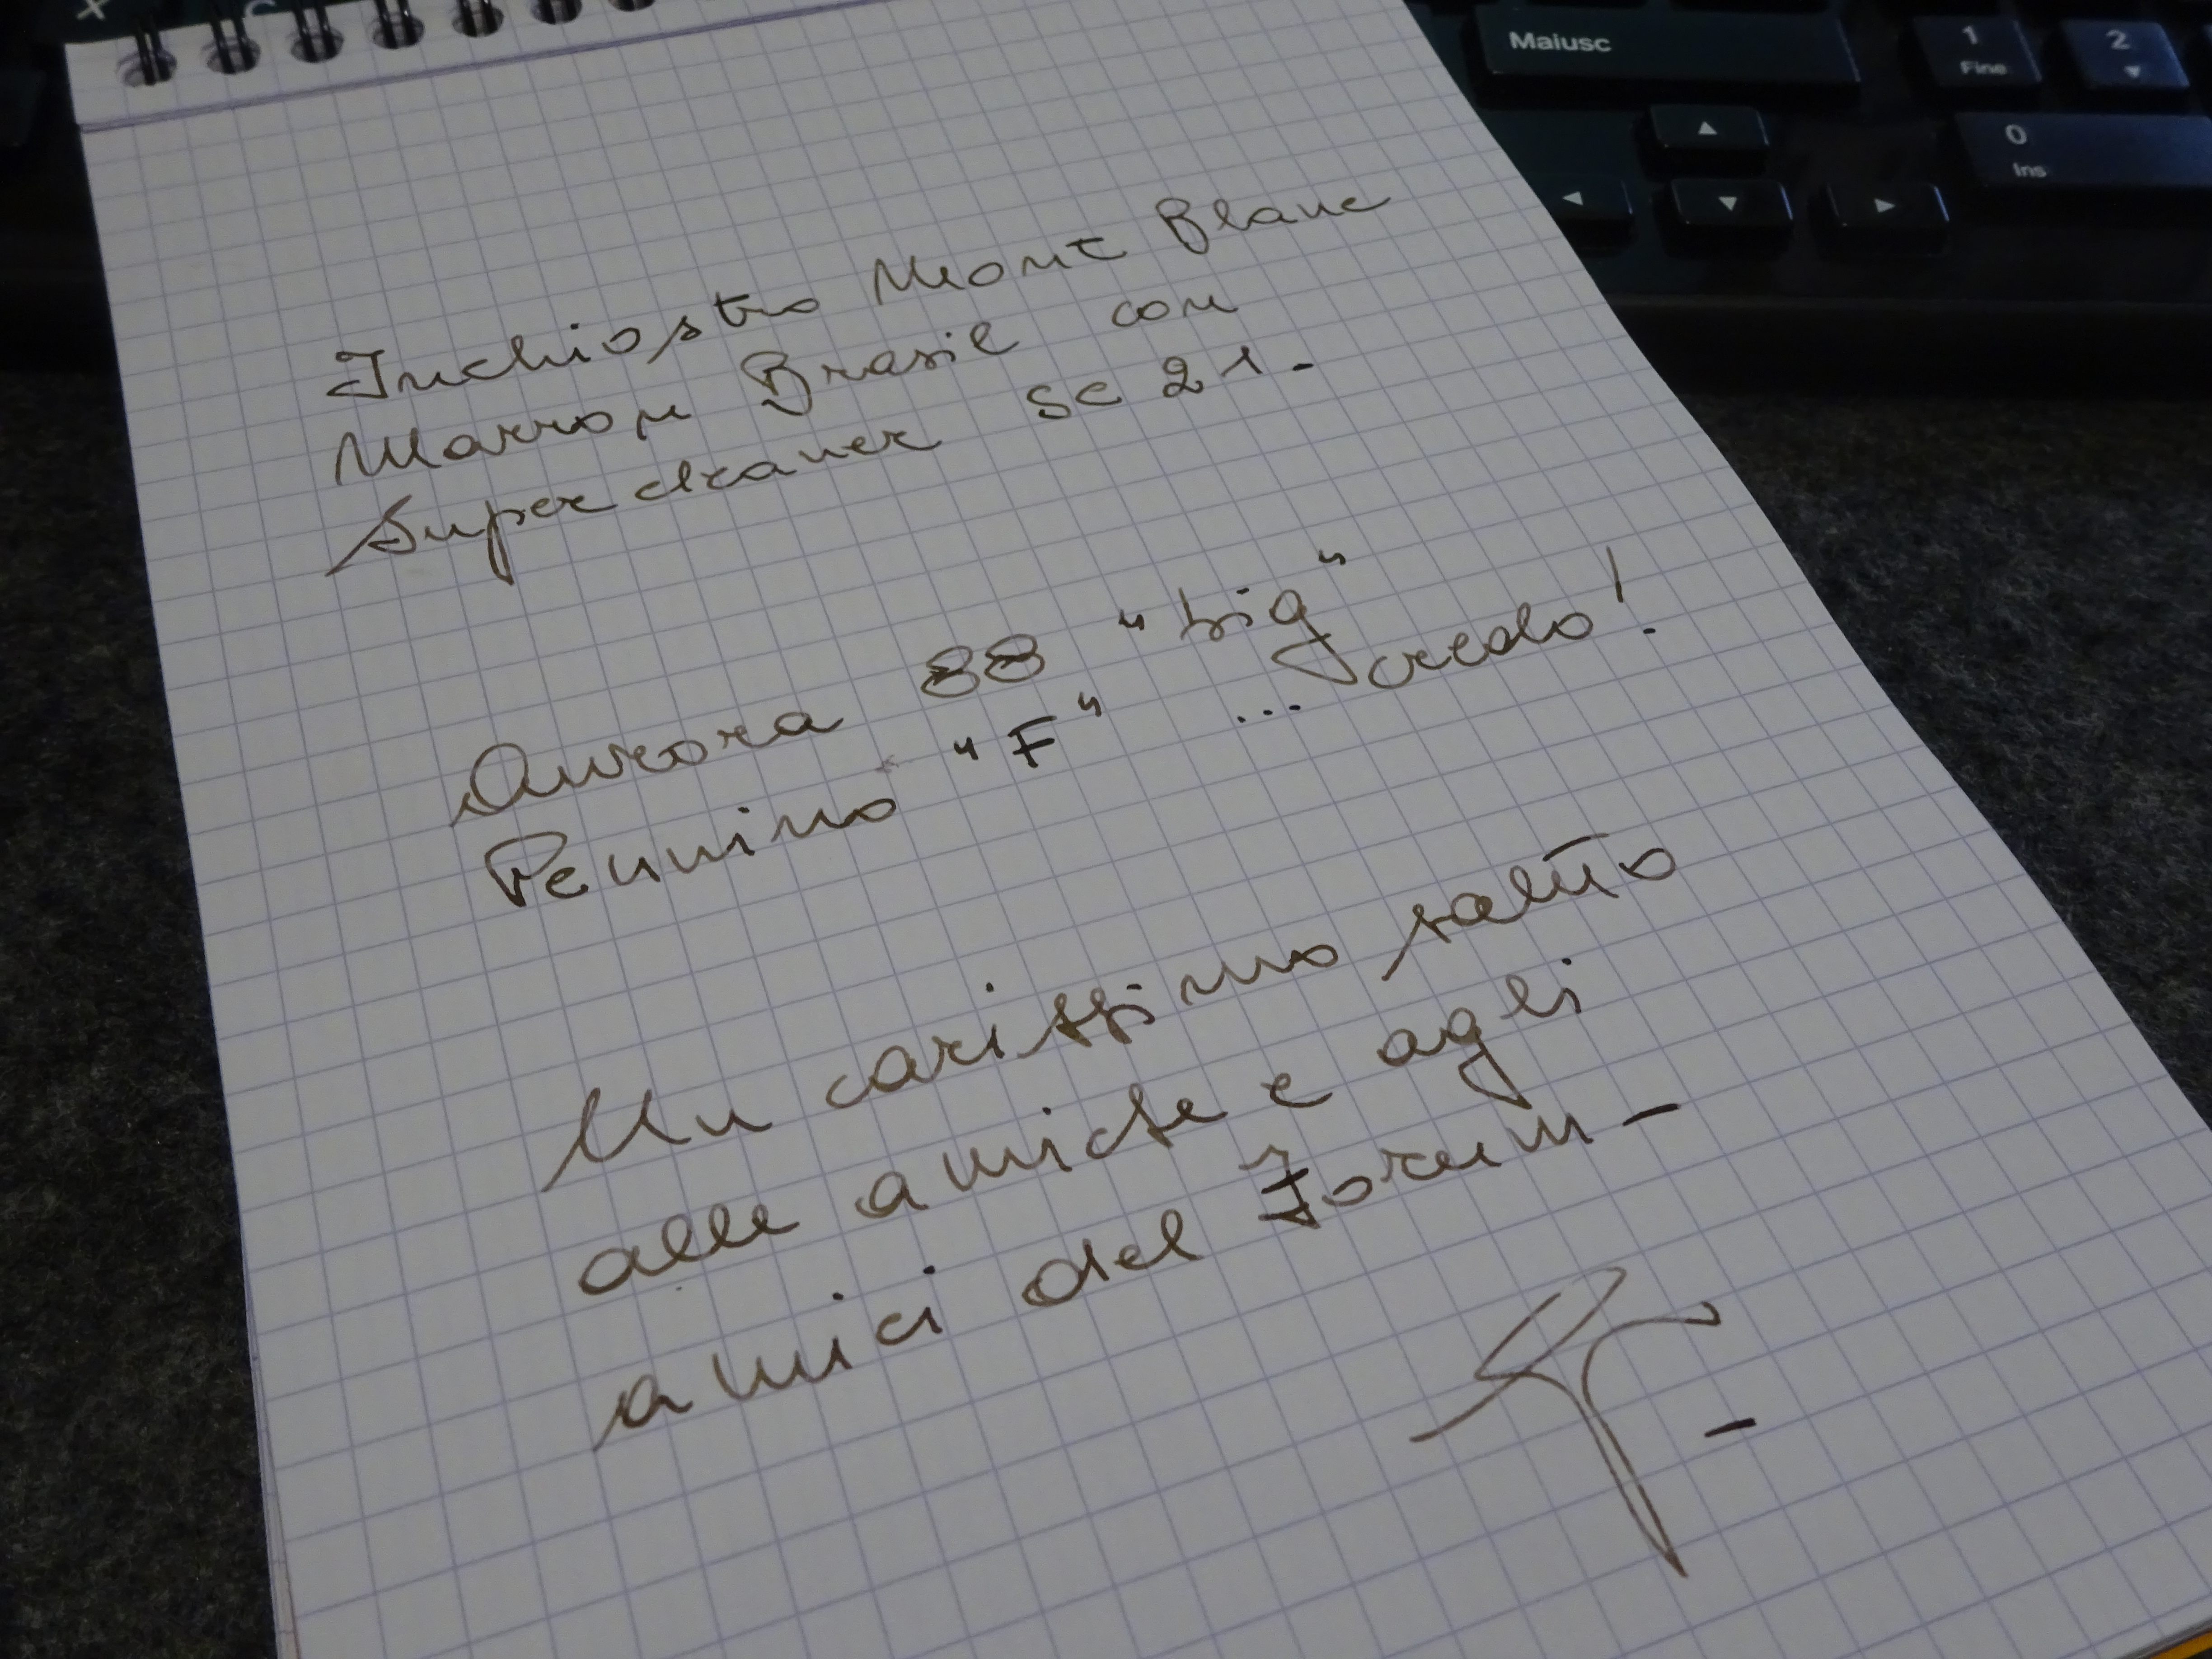 Maiusc
1
Fine
2
0
Ins
Inchiostro Mont Blanc
Marron Brasil con
Supercleaner SC 21.-
Aurora 88 "big"
Pennino "F" ... credo!
Un carissimo saluto
alle amiche e agli
amici del Forum-